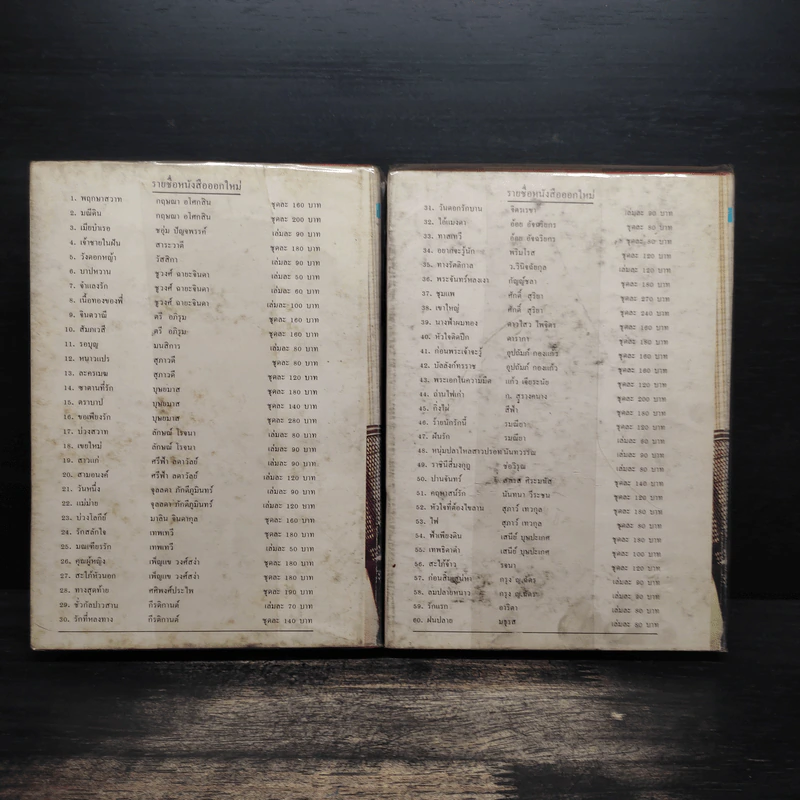 รายชื่อหนังสือออกใหม่
1. พฤกษาสวาท กฤษณา อโศกสิน ชุดละ 160 บาท
2. มณีดิน กฤษณา อโศกสิน ชุดละ 200 บาท
3. เมียบำเรอ ชอุ่ม ปัญจพรรค์ เล่มละ 90 บาท
4. เจ้าชายในฝัน สาระวาดี ชุดละ 180 บาท
5. วังดอกหญ้า รัสสิกา เล่มละ 90 บาท
6. บาปหวาน ชูวงศ์ ฉายะจินดา เล่มละ 50 บาท
7. จำเลยรัก ชูวงศ์ ฉายะจินดา เล่มละ 60 บาท
8. เนื้อทองของพี่ ชูวงศ์ ฉายะจินดา เล่มละ 100 บาท
9. จินตวาณี ตรี อภิรุม ชุดละ 160 บาท
10. สัมภเวสี ตรี อภิรุม ชุดละ 160 บาท
11. รอบุญ มนสิการ เล่มละ 80 บาท
12. หนาวแปร สุภาวดี ชุดละ 80 บาท
13. ละครเมฆ สุภาวดี ชุดละ 120 บาท
14. ซาตานที่รัก บุษยมาส ชุดละ 180 บาท
15. ตราบาป บุษยมาส ชุดละ 140 บาท
16. ขอเพียงรัก บุษยมาส ชุดละ 280 บาท
17. บ่วงสวาท ลักษณ์ โรจนา เล่มละ 80 บาท
18. เขยใหม่ ลักษณ์ โรจนา เล่มละ 90 บาท
19. สาวแก่ ศรีฟ้า ลดาวัลย์ เล่มละ 90 บาท
20. สามอนงค์ ศรีฟ้า ลดาวัลย์ เล่มละ 120 บาท
21. วันหนึ่ง จุลลดา ภักดีภูมินทร์ เล่มละ 90 บาท
22. แม่ม่าย จุลลดา ภักดีภูมินทร์ เล่มละ 120 บาท
23. บ่วงโลกีย์ มาลิน จินดากุล ชุดละ 160 บาท
24. รักสลักใจ เทพเทวี ชุดละ 180 บาท
25. มณเฑียรรัก เทพเทวี เล่มละ 50 บาท
26. คุณผู้หญิง เพ็ญแข วงศ์สง่า ชุดละ 180 บาท
27. สะใภ้หัวนอก เพ็ญแข วงศ์สง่า ชุดละ 180 บาท
28. ทางสุดท้าย ศศิพงศ์ประไพ ชุดละ 190 บาท
29. ชั่วกัลปาวสาน กีรติกานต์ เล่มละ 70 บาท
30. รักที่หลงทาง กีรติกานต์ ชุดละ 140 บาท
รายชื่อหนังสือออกใหม่
31. วันดอกรักบาน จิตรเรขา เล่มละ 90 บาท
32. ไอ้แมงดา อ้อย อัจฉริยกร เล่มละ 80 บาท
33. ทาสเทวี อ้อย อัจฉริยกร ชุดละ 80 บาท
34. อยากจะรู้นัก พริมโรส ชุดละ 120 บาท
35. ทางรัตติกาล ว.วินิจฉัยกุล เล่มละ 120 บาท
36. พระจันทร์หลงเงา กัญญ์ชลา ชุดละ 180 บาท
37. ชุมแพ ศักดิ์ สุริยา ชุดละ 270 บาท
38. เขาใหญ่ ศักดิ์ สุริยา ชุดละ 240 บาท
39. นางฟ้าผมทอง ชุดละ 160 บาท
40. หัวใจติดปีก ดารากร ชุดละ 180 บาท
41. ก่อนพระเจ้าจะรู้ อุปถัมภ์ กองแก้ว ชุดละ 180 บาท
42. บัลลังก์ทรราช อุปถัมภ์ กองแก้ว ชุดละ 160 บาท
43. พระเอกในความมืด แก้ว เจียระนัย ชุดละ 120 บาท
44. ถ่านไฟเก่า ก. สุรางคนางค์ ชุดละ 200 บาท
45. กิ่งไผ่ สีฟ้า ชุดละ 180 บาท
46. ร้ายนักรักนี้ รมณียา ชุดละ 120 บาท
47. ฝันรัก รมณียา เล่มละ 80 บาท
48. หนุ่มปลาไหลสาวปรอท นันทวรรณ เล่มละ 90 บาท
49. ราชินีสีมงกุฎ ช่อวิรุณ เล่มละ 80 บาท
50. ม่านจันทร์ ชุดละ 140 บาท
51. นันทนา วีระชน ชุดละ 120 บาท
52. หัวใจที่ต้องใช้สาน สุภาว์ เทวกุล ชุดละ 180 บาท
53. ไฟ สุภาว์ เทวกุล ชุดละ 80 บาท
54. ฟ้าเพียงดิน เสนีย์ บุษปะเกศ ชุดละ 180 บาท
55. เทพธิดาดำ เสนีย์ บุษปะเกศ ชุดละ 100 บาท
56. สะใภ้จ้าว รจนา ชุดละ 120 บาท
57. กรุง ญ.ฉัตร เล่มละ 90 บาท
58. ลมปลายหนาว กรุง ญ.ฉัตร เล่มละ 90 บาท
59. รักแรก อาริตา เล่มละ 80 บาท
60. ฝนปลาย มธุรส เล่มละ 80 บาท